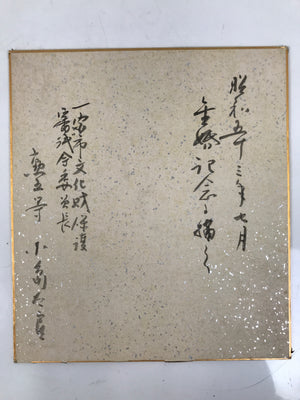 昭和五十三年七月
金婚記念に描く
一宮市文化財保護
審議会委員長
勲五等 小島